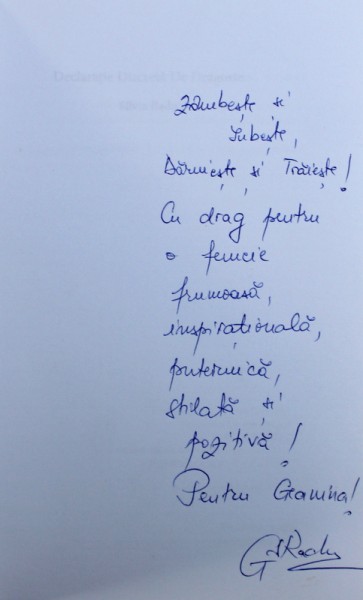 Zâmbește și
Iubește,
Dăruiește și Trăiește!
Cu drag pentru
o femeie
frumoasă,
inspirațională,
puternică,
stilată și
pozitivă!
Pentru Geanina!